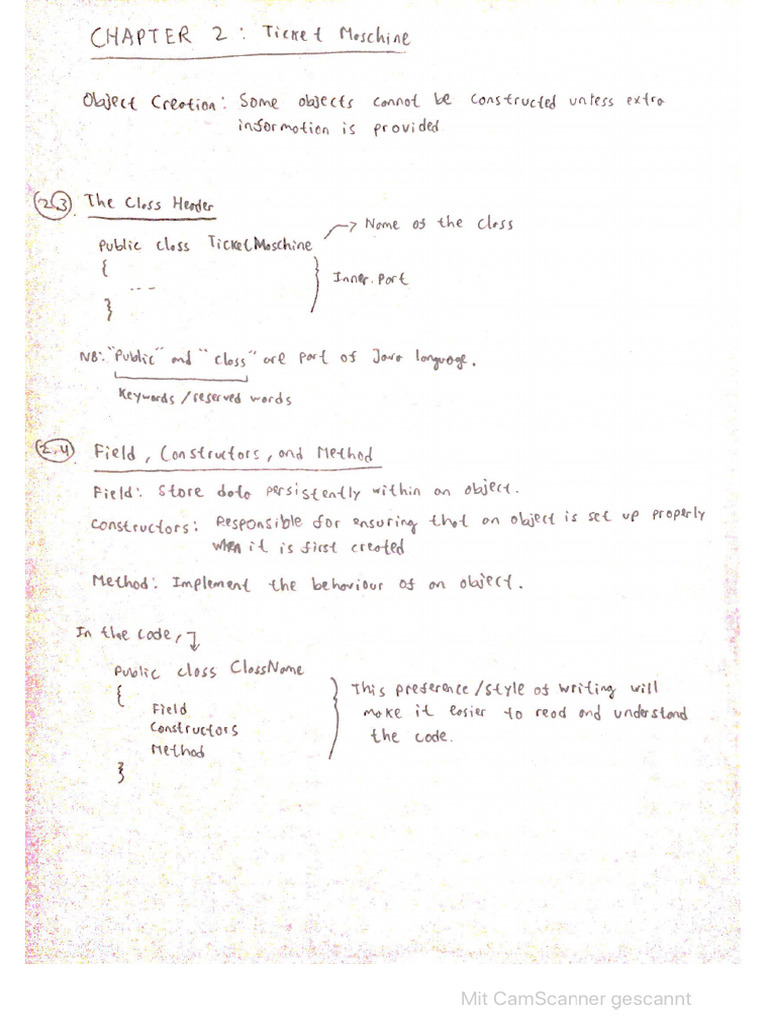 CHAPTER 2 : Ticket Maschine
Object Creation : Some objects cannot be constructed unless extra
information is provided
2.3. The Class Header
Name of the class
Public class TicketMaschine
{
Inner.part
...
}
NB: "Public" and "class" are part of Java language.
Keywords / reserved words
2.4 Field, Constructors, and Method
Field : Store data persistently within an object.
Constructors : Responsible for ensuring that an object is set up properly
when it is first created
Method : Implement the behaviour of an object.
In the code,
Public class ClassName
{
Field
Constructors
Method
}
This preference/style of writing will
make it easier to read and understand
the code.
Mit CamScanner gescannt